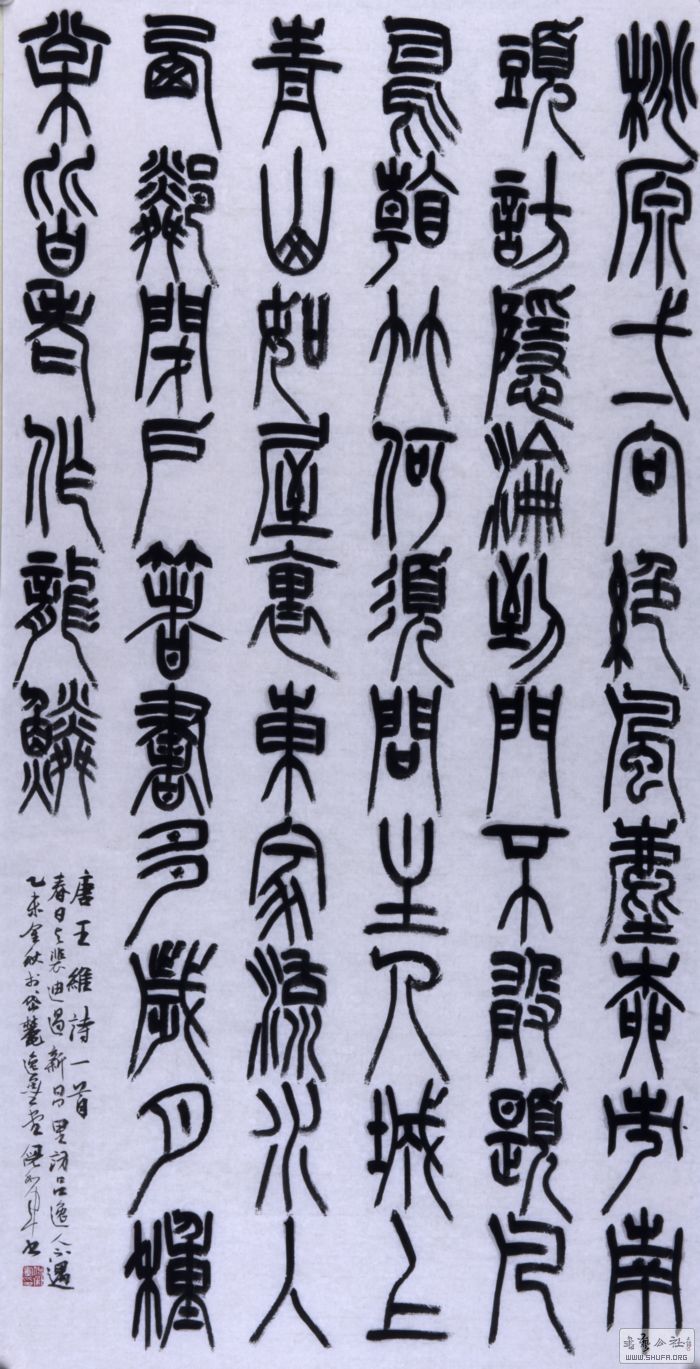 桃原弌向絕風塵柳市南
頭訪隱淪到門不敢題凡
鳥看竹何須問主人城上
青山如屋裏東家流水入
西鄰閉戶著書多歲月種
松皆老作龍鱗
唐王維詩一首
春日与裴迪過新昌里訪呂逸人不遇
乙未金秋於岱麓逸墨堂
書藝公社
WWW.SHUFA.ORG